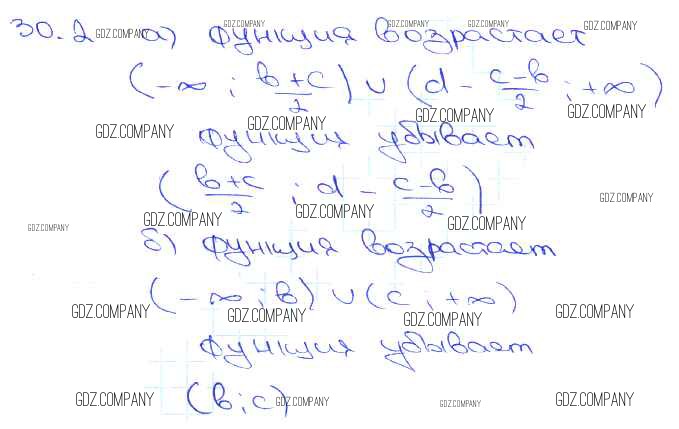 30.2 GDZ.COMPANY а) функция возрастает GDZ.COMPANY GDZ.COMPANY GDZ.COMPANY GDZ.COMPANY
(-∞ ; (b+c)/2) ∪ (d - (c-b)/2 ; +∞)
GDZ.COMPANY GDZ.COMPANY GDZ.COMPANY GDZ.COMPANY
функция убывает
((b+c)/2 ; d - (c-b)/2)
GDZ.COMPANY GDZ.COMPANY GDZ.COMPANY GDZ.COMPANY GDZ.COMPANY
б) функция возрастает
(-∞ ; b) ∪ (c ; +∞)
GDZ.COMPANY GDZ.COMPANY GDZ.COMPANY GDZ.COMPANY
функция убывает
(b ; c)
GDZ.COMPANY GDZ.COMPANY GDZ.COMPANY GDZ.COMPANY